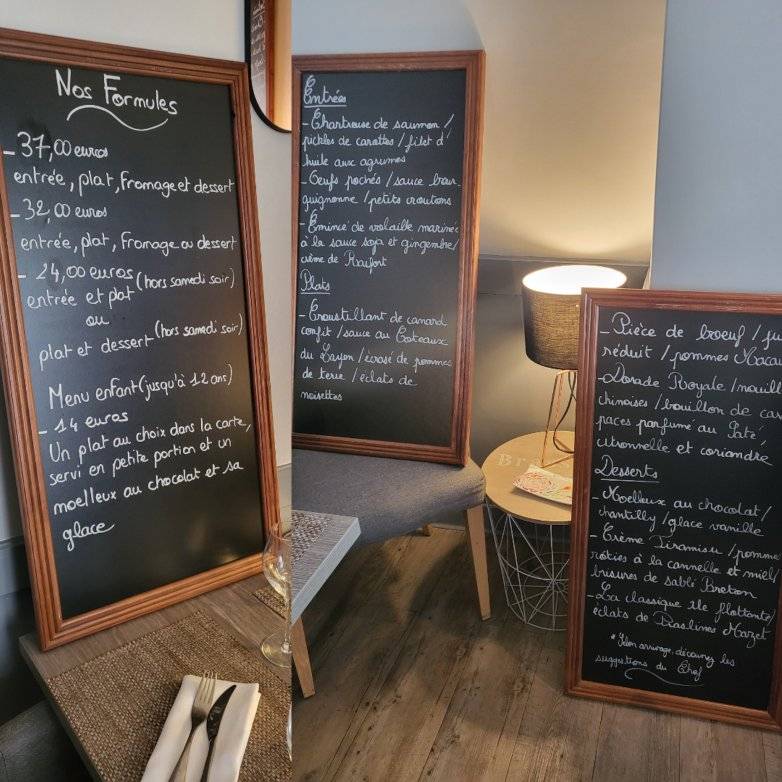 Nos Formules
- 37,00 euros
entrée, plat, fromage et dessert
- 32,00 euros
entrée, plat, fromage ou dessert
- 24,00 euros (hors samedi soir)
entrée et plat
ou
plat et dessert (hors samedi soir)
Menu enfant (jusqu'à 12 ans)
- 14 euros
Un plat au choix dans la carte,
servi en petite portion et un
moelleux au chocolat et sa
glace
Entrées
- Chartreuse de saumon /
pickles de carottes / filet d'
huile aux agrumes
- Oeufs pochés / sauce bour-
guignonne / petits croutons
- Emincé de volaille marinée
à la sauce soja et gingembre /
crème de Raifort
Plats
- Croustillant de canard
confit / sauce au Coteaux
du Layon / écrasé de pommes
de terre / éclats de
noisettes
- Pièce de boeuf / ju
réduit / pommes Macai
- Dorade Royale / nouill
chinoises / bouillon de ca
paces parfumé au
citronnelle et coriandre
Desserts
- Moelleux au chocolat /
chantilly / glace vanille
- Crème Tiramisu / pomme
rôties à la cannelle et miel /
brisures de sablé Breton
- La classique île flottante /
éclats de Praslines Mazet
* Selon arrivage, découvrez les
suggestions du Chef
Br